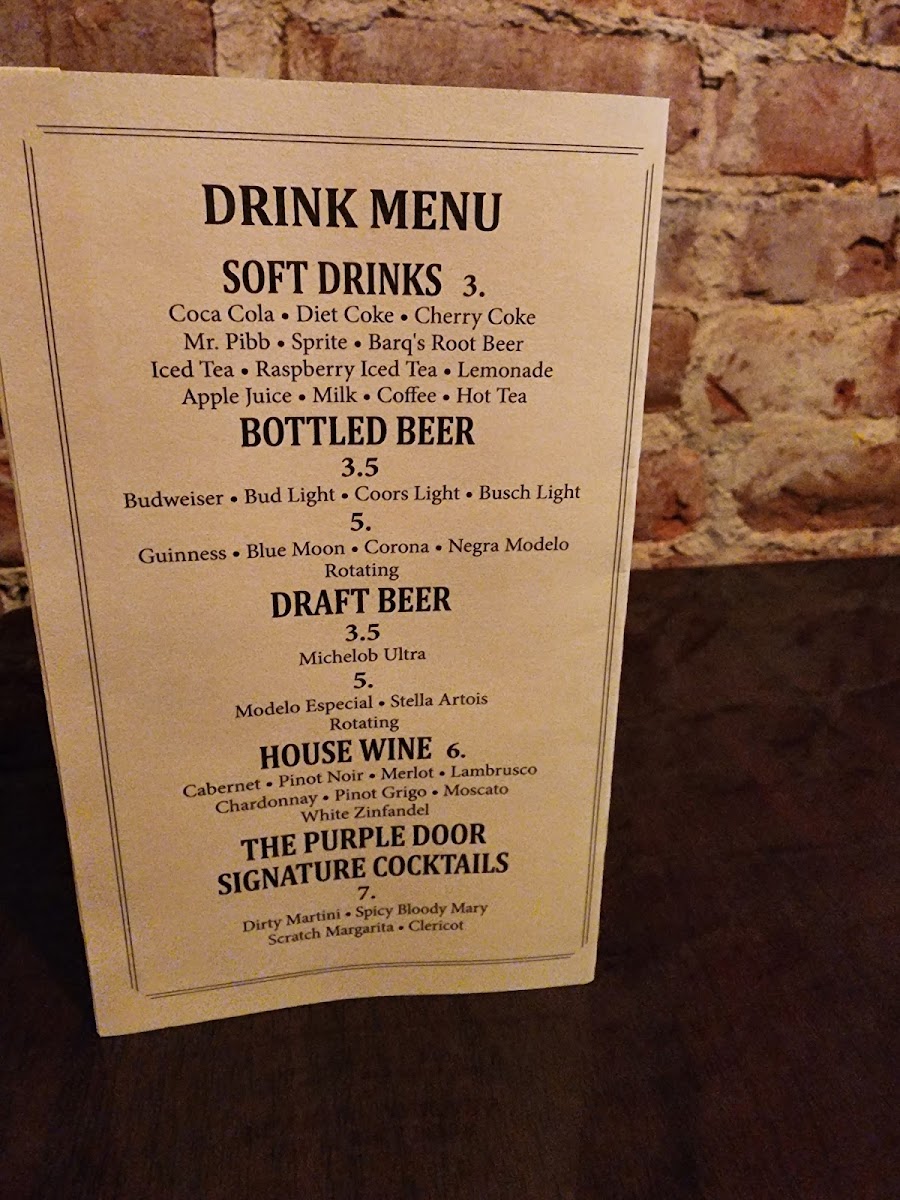 DRINK MENU
SOFT DRINKS 3.
Coca Cola • Diet Coke • Cherry Coke
Mr. Pibb • Sprite • Barq's Root Beer
Iced Tea • Raspberry Iced Tea • Lemonade
Apple Juice • Milk • Coffee • Hot Tea
BOTTLED BEER
3.5
Budweiser • Bud Light • Coors Light • Busch Light
5.
Guinness • Blue Moon • Corona • Negra Modelo
Rotating
DRAFT BEER
3.5
Michelob Ultra
5.
Modelo Especial • Stella Artois
Rotating
HOUSE WINE 6.
Cabernet • Pinot Noir • Merlot • Lambrusco
Chardonnay • Pinot Grigo • Moscato
White Zinfandel
THE PURPLE DOOR
SIGNATURE COCKTAILS
7.
Dirty Martini • Spicy Bloody Mary
Scratch Margarita • Clericot